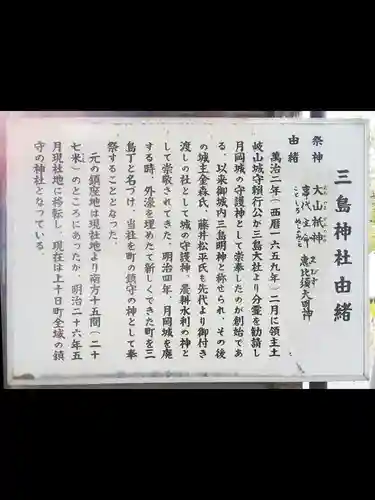 三島神社由緒
祭神　大山祇神
事代主命　恵比須大明神
ことしろぬしのみこと　えびす
由緒
萬治二年（西暦一六五九年）二月に領主土
岐山城守頼行公が三島大社より分霊を勧請し
月岡城の守護神として崇奉したのが創始であ
る、以来御城内三島明神と称せられ、その後
の城主金森氏、藤井松平氏も先代より御付き
渡しの社として城の守護神、農耕水利の神と
して崇敬されてきた。明治四年、月岡城を廃
する時、外濠を埋めたて新しくできた町を三
島丁と名づけ、当社を町の鎮守の神として奉
祭することとなった。
元の鎮座地は現社地より南方十五間（二十
七米）のところにあったが、明治二十六年五
月現社地に移転し、現在は上十日町全域の鎮
守の神社となっている。